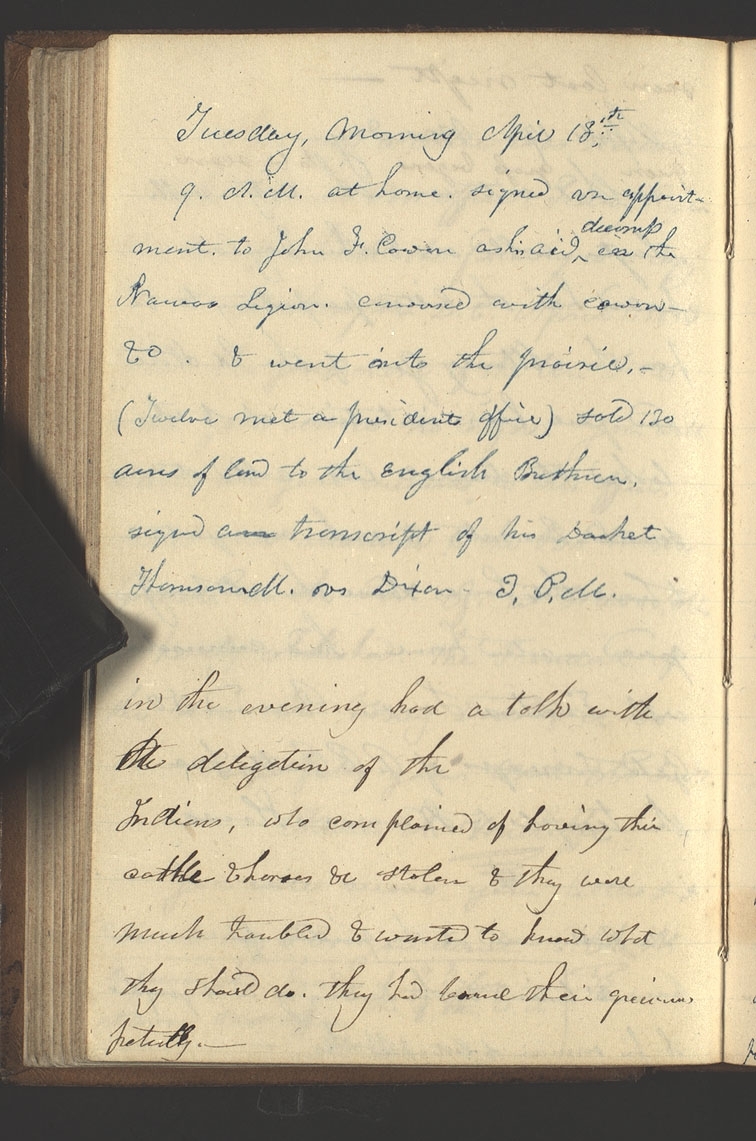 Tuesday, Morning April 18,th
9. A.M. at home. signed an appoint-
ment. to John F. Cowan as his aid, decamp in the
Nauvoo Legion. conversed with cowan-
&c. & went out to the prairie,-
(Twelve met a presidents office) sold 130
acres of land to the English Brethren.
signed a transcript of his Docket
vs Dixon- J. P. M.
in the evening had a talk with
the deligation of the
Indians, who complained of having thir
cattle & horses &c stolen & they were
much troubled & wanted to know what
thy should do. they had borne their grievances
patiently.-